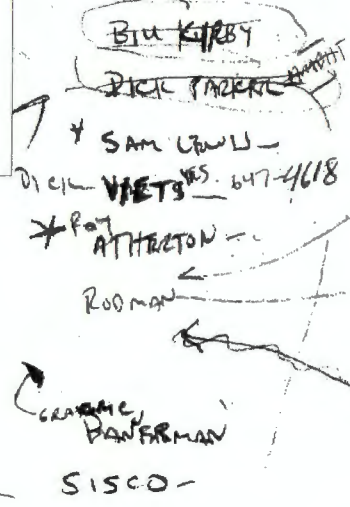 BILL KIRBY
DICK PARKER
* SAM LEWIS -
DICK VIETS YES. 647-4618
* ROY
ATHERTON -
RODMAN
GRAEME
BANNERMAN
SISCO -